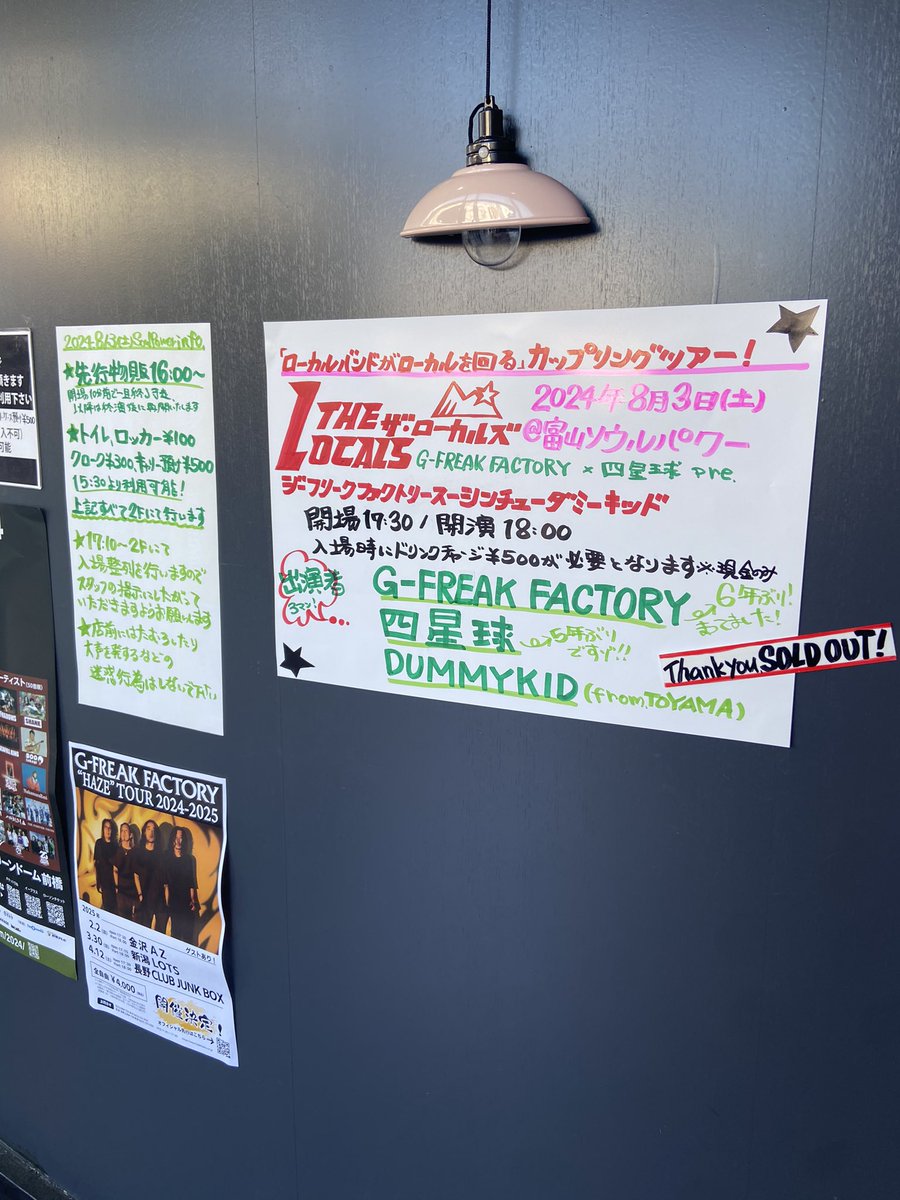 「ローカルバンドがローカルを回る」カップリングツアー!
THE LOCALS
ザ・ローカルズ
2024年8月3日(土)
@富山ソウルパワー
G-FREAK FACTORY × 四星球 pre.
ジーフリークファクトリースーシンチューダミーキッド
開場17:30 / 開演18:00
入場時にドリンクチャージ¥500が必要となります※現金のみ
出演者
3マン!
G-FREAK FACTORY
6年ぶり!
まってました!
四星球
5年ぶり
ですゾ!!
DUMMYKID (from.TOYAMA)
Thank you SOLD OUT!
★先行物販16:00〜
開場10分前で一旦終了守备
以降は終演後に再開いたします
★トイレ,ロッカー¥100
クローク¥300,キャリー預け¥500
15:30より利用可能!
上記すべて2Fにて行います
★17:10〜2Fにて
入場整列を行いますので
スタッフの指示にしたがって
いただきますようお願いします
★店前にはたむろったり
大声を出するなどの
迷惑行為はしないで下さい
G-FREAK FACTORY
"HAZE" TOUR 2024-2025
2025年
ゲストあり!
2.2 金沢 A.Z
3.30 新潟 LOTS
4.12 長野 CLUB JUNK BOX
全自由 ¥4,000
開催決定!
オフィシャル先行はこちら→
きます
利用下さい
¥500
入不可)
可能
ーティスト(50音順)
ーンドーム前橋
m/2024/